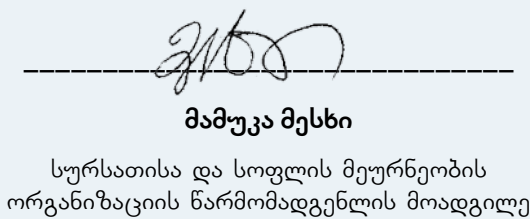 მამუკა მესხი
სურსათისა და სოფლის მეურნეობის
ორგანიზაციის წარმომადგენლის მოადგილე